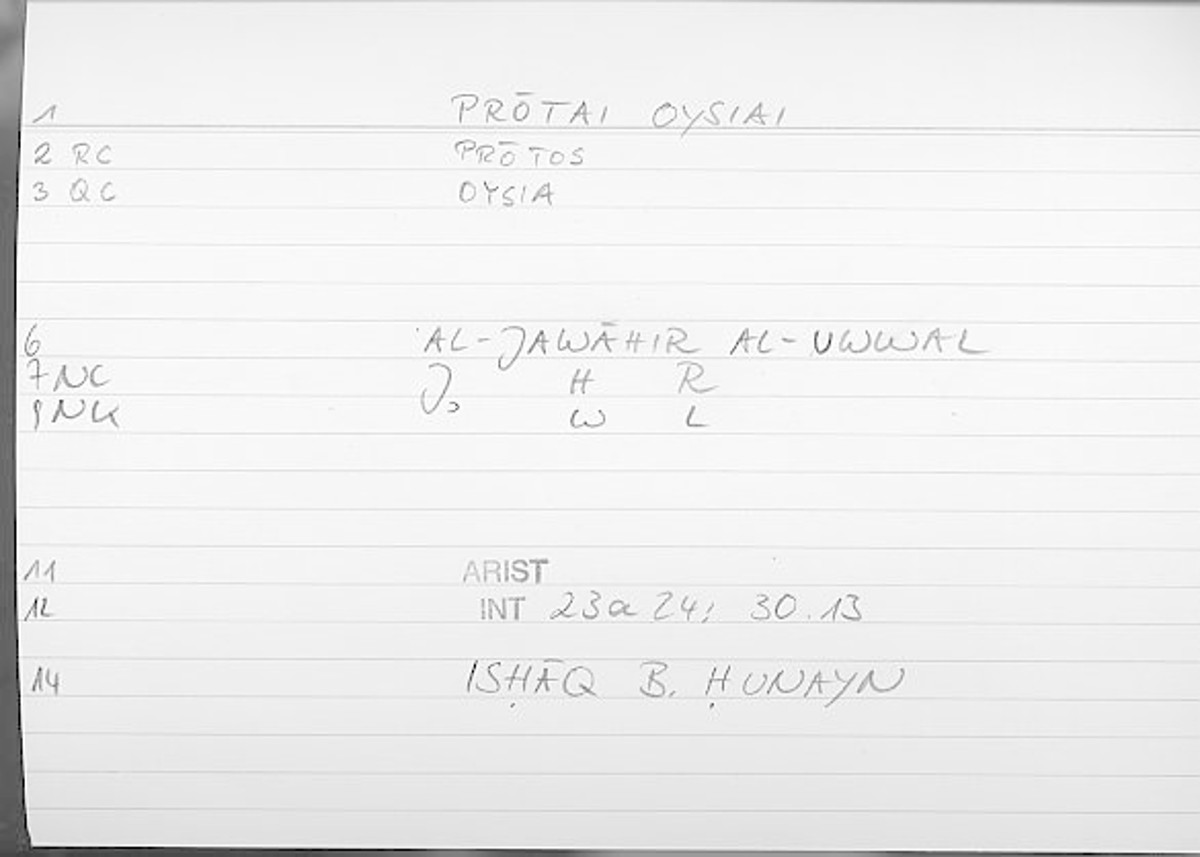 1 PRŌTAI OYSIAI
2 RC PRŌTOS
3 QC OYSIA
6 'AL-JAWĀHIR AL-UWWAL
7 NC J H R
NK W L
11 ARIST
12 INT 23a 24; 30.13
14 ISḤĀQ B. ḤUNAYN